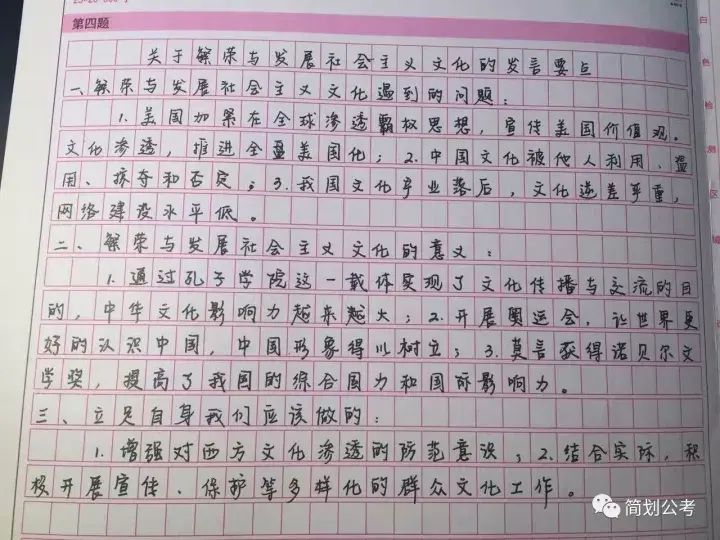 第四题
关于繁荣与发展社会主义文化的发言要点
一、繁荣与发展社会主义文化遇到的问题：
1.美国加紧在全球渗透霸权思想，宣传美国价值观。
文化渗透，推进全盘美国化；2.中国文化被他人利用、滥
用、掠夺和否定；3.我国文化产业落后，文化逆差严重，
网络建设水平低。
二、繁荣与发展社会主义文化的意义：
1.通过孔子学院这一载体实现了文化传播与交流的目
的，中华文化影响力越来越大；2.开展奥运会，让世界更
好的认识中国，中国形象得以树立；3.莫言获得诺贝尔文
学奖，提高了我国的综合国力和国际影响力。
三、立足自身我们应该做的：
1.增强对西方文化渗透的防范意识；2.结合实际，积
极开展宣传、保护等多样化的群众文化工作。
白
色
检
测
区
简划公考